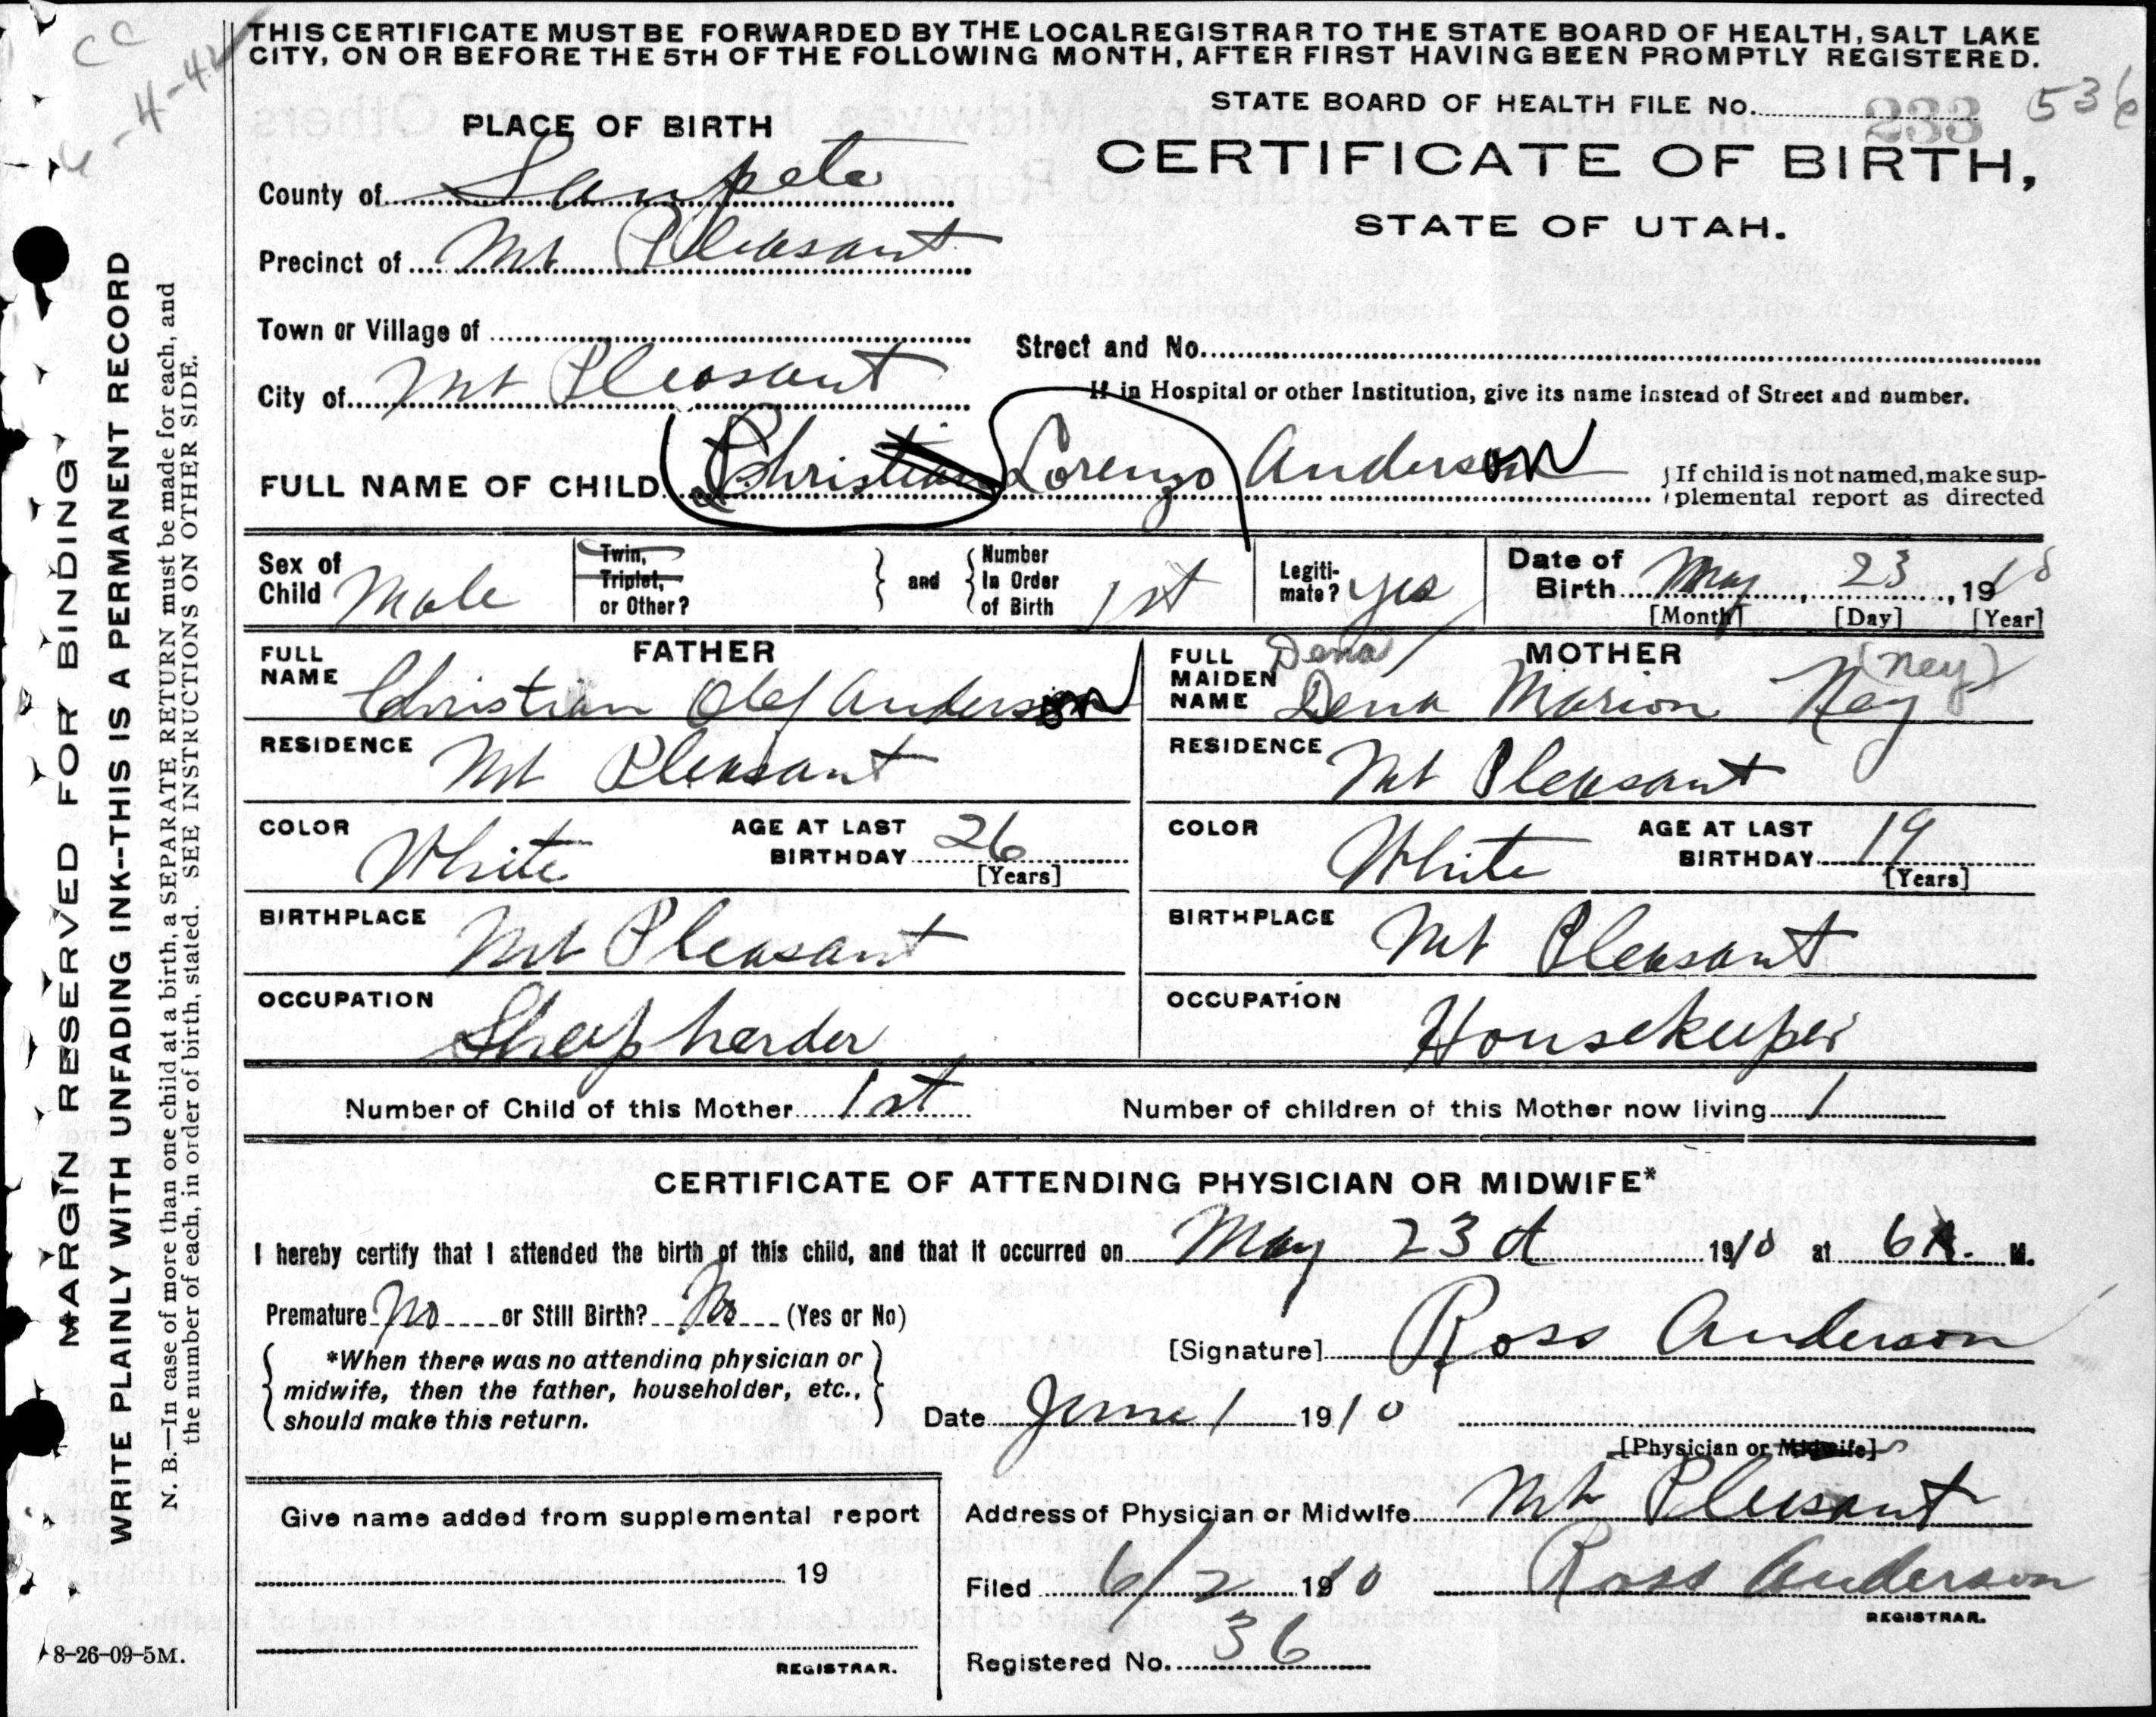 THIS CERTIFICATE MUST BE FORWARDED BY THE LOCAL REGISTRAR TO THE STATE BOARD OF HEALTH, SALT LAKE
CITY, ON OR BEFORE THE 5TH OF THE FOLLOWING MONTH, AFTER FIRST HAVING BEEN PROMPTLY REGISTERED.
CC
4-42
STATE BOARD OF HEALTH FILE No. 233 536
PLACE OF BIRTH
CERTIFICATE OF BIRTH,
STATE OF UTAH.
County of Sanpete
Precinct of Mt Pleasant
Town or Village of
Street and No.
City of Mt Pleasant
If in Hospital or other Institution, give its name instead of Street and number.
FULL NAME OF CHILD Christian Lorenzo Anderson
If child is not named, make sup-
plemental report as directed
Sex of Child Male
Twin, Triplet, or Other?
and
Number In Order of Birth 1st
Legiti-mate? yes
Date of Birth May 23, 1910
[Month] [Day] [Year]
FATHER
FULL NAME Christian Olef Anderson
RESIDENCE Mt Pleasant
COLOR White
AGE AT LAST BIRTHDAY 26
[Years]
BIRTHPLACE Mt Pleasant
OCCUPATION Sheep herder
MOTHER
Dena (Ney)
FULL MAIDEN NAME Dena Marion Ney
RESIDENCE Mt Pleasant
COLOR White
AGE AT LAST BIRTHDAY 19
[Years]
BIRTHPLACE Mt Pleasant
OCCUPATION Housekeeper
Number of Child of this Mother 1st
Number of children of this Mother now living 1
CERTIFICATE OF ATTENDING PHYSICIAN OR MIDWIFE*
I hereby certify that I attended the birth of this child, and that it occurred on May 23 d 1910 at 6 A. M.
Premature No or Still Birth? No (Yes or No)
*When there was no attending physician or
midwife, then the father, householder, etc.,
should make this return.
[Signature] Ross Anderson
Date June 1 1910
[Physician or Midwife]
Address of Physician or Midwife Mt Pleasant
Give name added from supplemental report
19
REGISTRAR.
Filed 6/2 1910 Ross Anderson
REGISTRAR.
Registered No. 36
8-26-09-5M.
MARGIN RESERVED FOR BINDING
WRITE PLAINLY WITH UNFADING INK--THIS IS A PERMANENT RECORD
N. B.—In case of more than one child at a birth, a SEPARATE RETURN must be made for each, and
the number of each, in order of birth, stated. SEE INSTRUCTIONS ON OTHER SIDE.